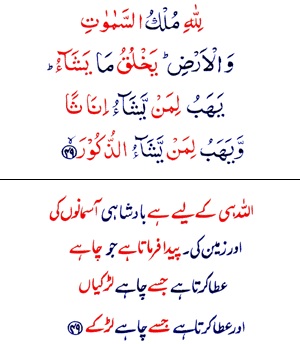 لِلّٰهِ مُلْكُ السَّمٰوٰتِ
وَالْاَرْضِ ؕ يَخْلُقُ مَا يَشَآءُ ؕ
يَهَبُ لِمَنْ يَّشَآءُ اِنَاثًا
وَّيَهَبُ لِمَنْ يَّشَآءُ الذُّكُوْرَ ۙ﴿۴۹﴾
اللہ ہی کے لیے ہے بادشاہی آسمانوں کی
اور زمین کی۔ پیدا فرماتا ہے جو چاہے
عطا کرتا ہے جسے چاہے لڑکیاں
اور عطا کرتا ہے جسے چاہے لڑکے ﴿۴۹﴾